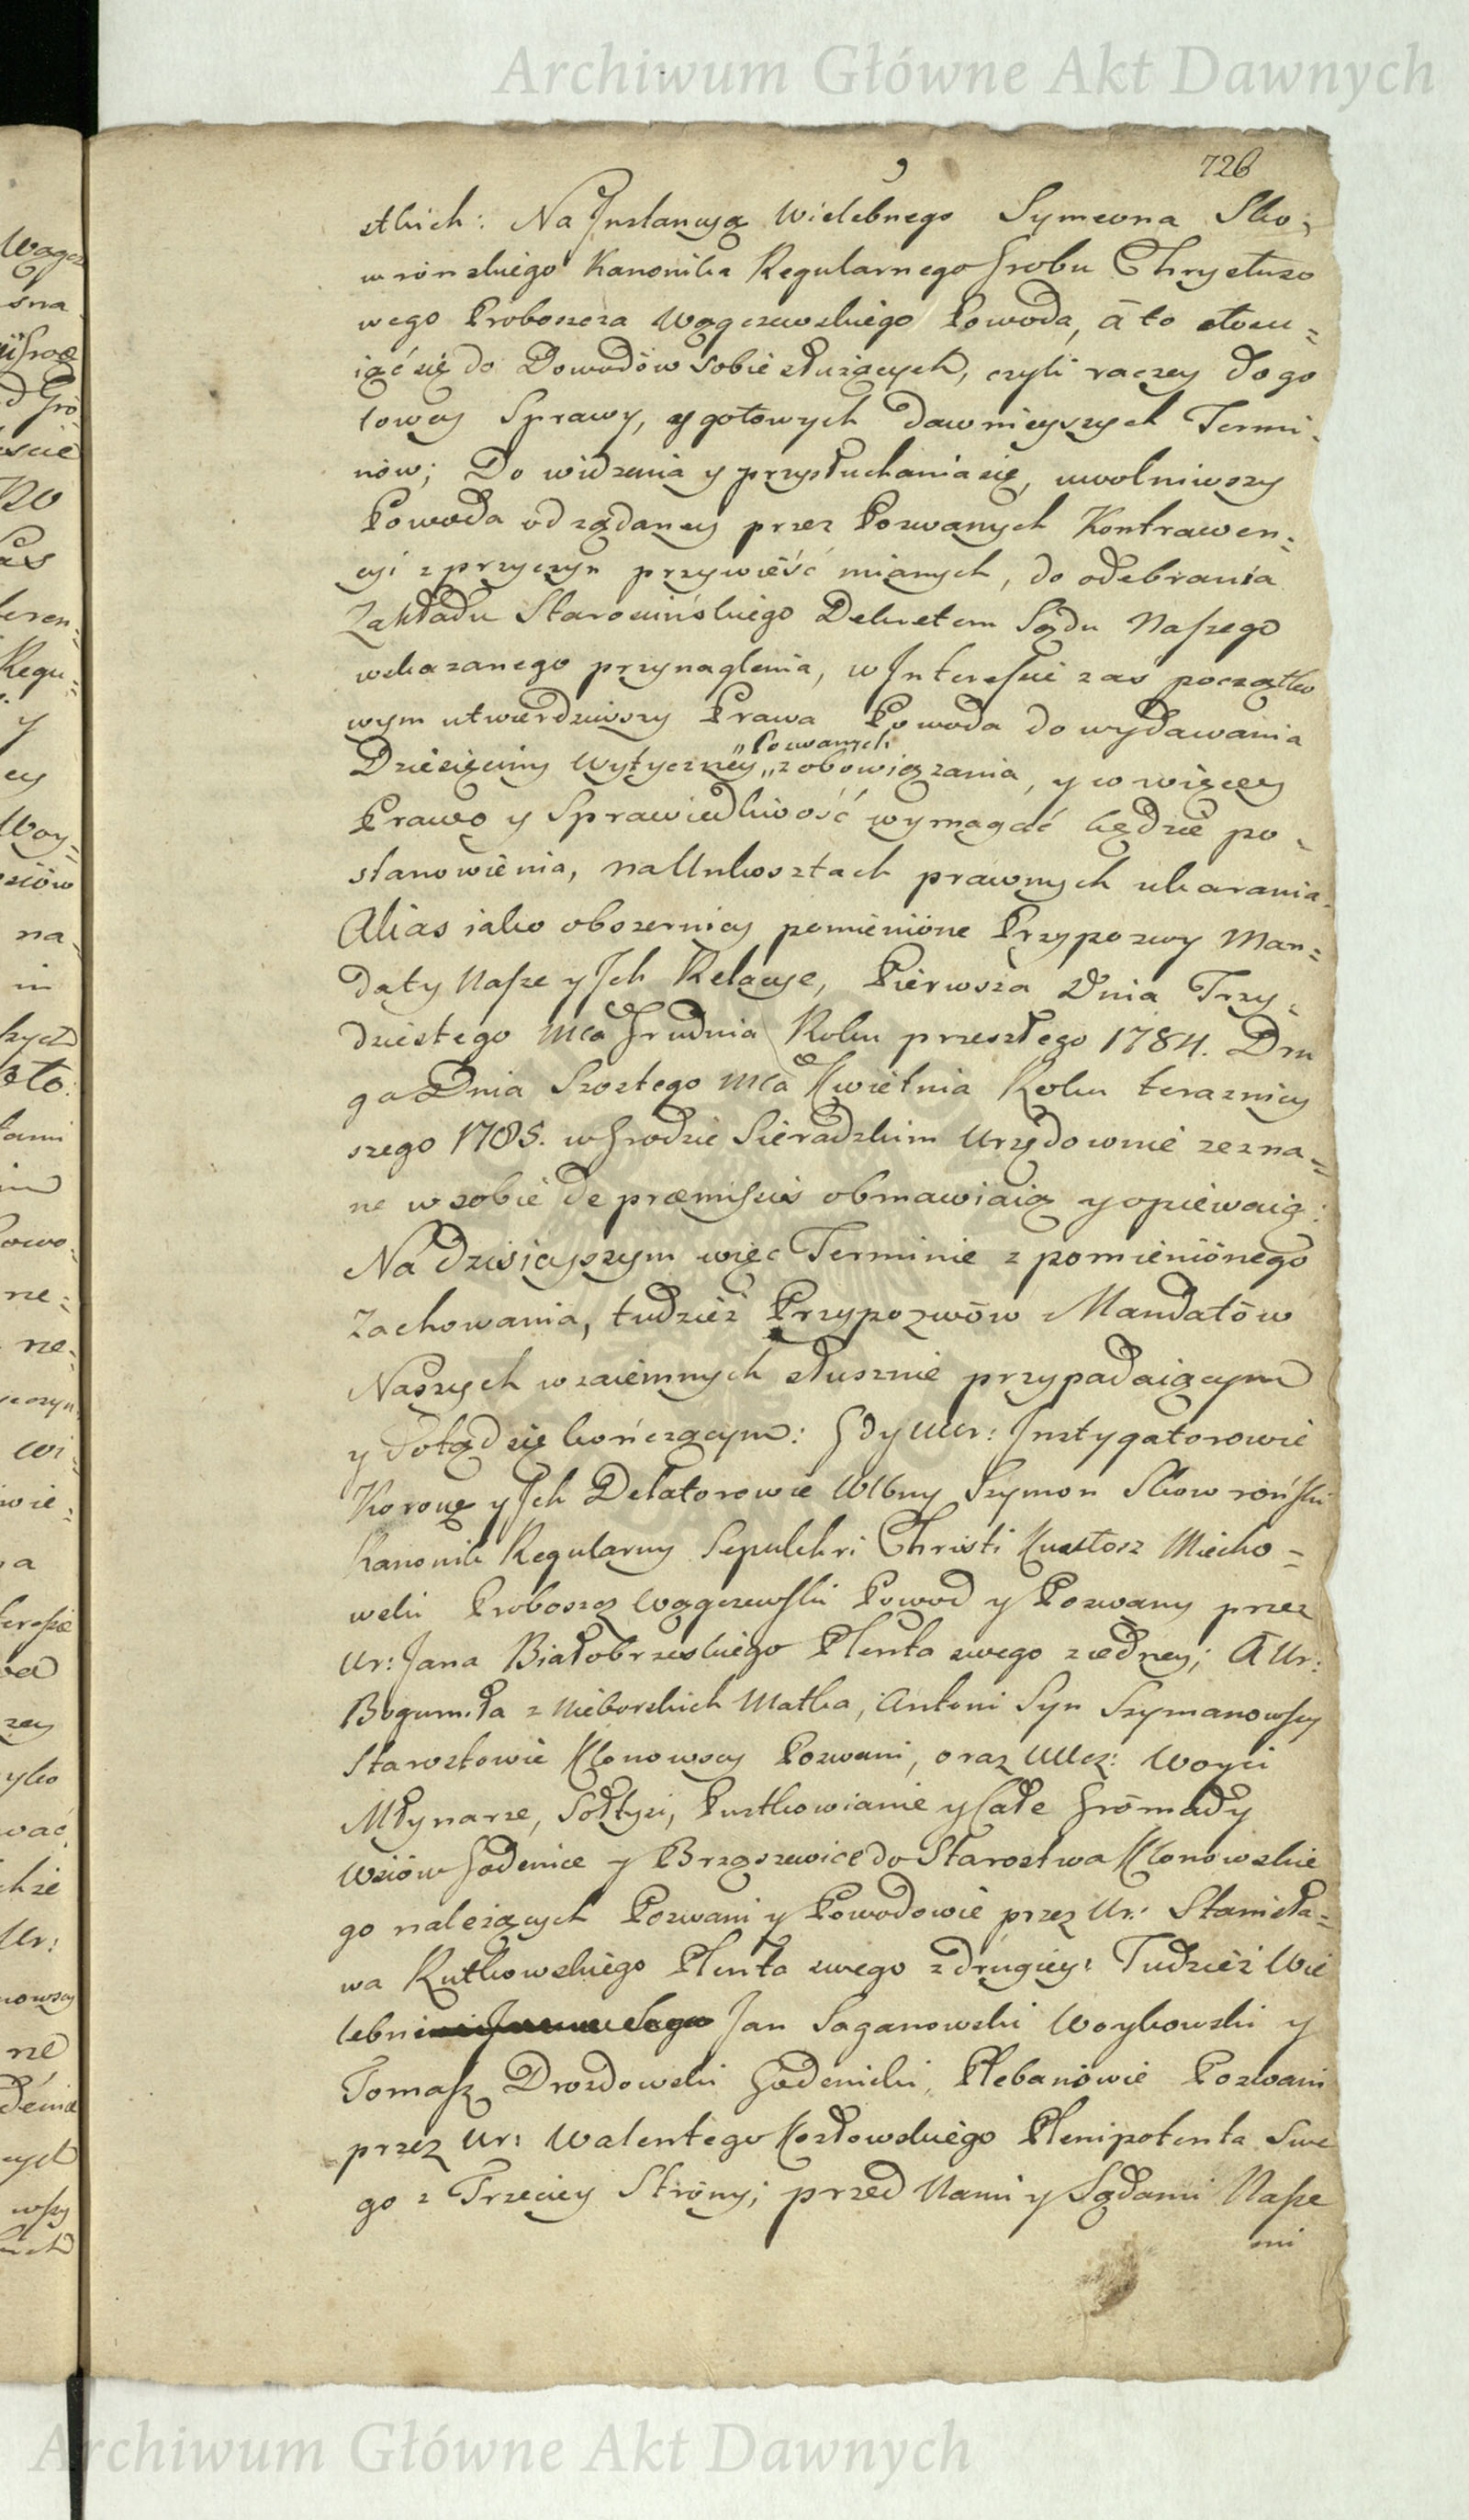 Archiwum Główne Akt Dawnych
726
stkich: Na Jnstancyą Wielebnego Symeona Sko-
wrońskiego Kanonika Regularnego Grobu Chrystuso
wego Proboszcza Wągczewskiego Powoda, á to stosu=
iąć się do Dowodów sobie służących, czyli raczey do go
towey Sprawy, y gotowych dawnieyszych Termi-
nów; Do widzenia y przysłuchania się, uwolniwszy
Powoda od zadaney przez Pozwanych Kontrawen=
cyi z przyczyn przywieść mianych, do odebrania
Zakładu Staroscińskiego Dekretem Sądu Naszego
wskazanego przynaglenia, w Jnteressie zas początko
wym utwierdziwszy Prawa Powoda do wydawania
„Pozwanych
Dziesięciny Wytyczney „zobowiązania, y co więcey
Prawo y Sprawiedliwość wymagać będzie po-
stanowienia, na Unkosztach prawnych ukarania
Alias iako obszerniey pomienióne Przypozwy Man=
daty Nasze y Jch Relacye, Pierwsza Dnia Trzy-
dziestego Mca Grudnia Roku przeszłego 1784. Dru
ga Dnia Szostego Mca Kwietnia Roku terazniey
szego 1785. w Grodzie Sieradzkim Urzędownie zezna=
ne w sobie de præmissis obmawiaią y opiewaią:
Na dzisieyszym więc Terminie z pomieniónego
Zachowania, tudzież Przypozwów Mandatów
Naszych wzaiemnych słusznie przypadaiącym
y Dotąd się kończącym: Gdy UUr: Jnstygatorowie
Koroni y Jch Delatorowie Wlbny Szymon Skowroński
Kanonik Regularny Sepulchri Christi Kustosz Miecho=
wski Proboszcz Wągczewski Powod y Pozwany przez
Ur: Jana Białobrzeskiego Plenta swego z iedney; A Ur:
Bogumiła z Nieborskich Matka, Antoni Syn Szymanowscy
Starostowie Klonowscy Pozwani, oraz UUcz: Woyci
Młynarze, Sołtysi, Pustkowianie y Całe Grómady
Wsiów Godenice y Brząszewice do Starostwa Klonowskie
go należących Pozwani y Powodowie przez Ur: Stanisła=
wa Rutkowskiego Plenta swego z drugiey: Tudzież Wie
lebni Jan Saganowski Woykowski y
Tomasz Drozdowski Godenicki, Plebanówie Pozwani
przez Ur: Walentego Kozłowskiego Plenipotenta Swe
go z Trzeciey Stróny; przed Nami y Sądami Nasze
mi
Archiwum Główne Akt Dawnych